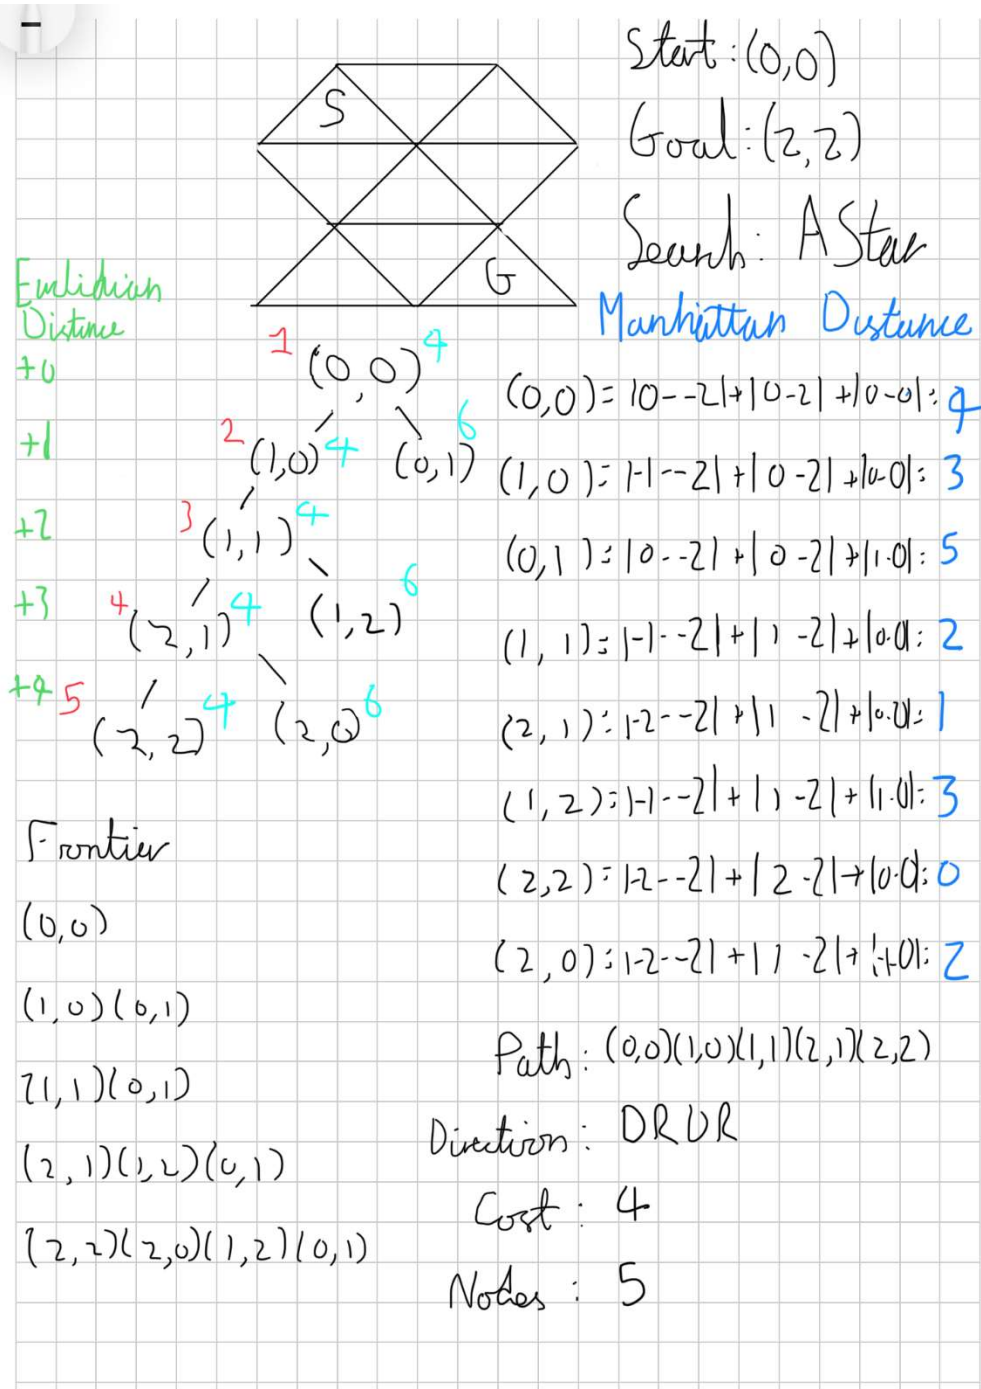 S
G
Start: (0,0)
Goal: (2,2)
Search: A Star
Euclidian
Distance
+0
+1
+2
+3
+4
1 (0,0) 4
2 (1,0) 4 (0,1) 6
3 (1,1) 4
4 (2,1) 4 (1,2) 6
5 (2,2) 4 (2,0) 6
Manhattan Distance
(0,0) = |0--2|+|0-2|+|0-0|: 4
(1,0): |-1--2|+|0-2|+|0-0|: 3
(0,1): |0--2|+|0-2|+|1-0|: 5
(1,1): |-1--2|+|1-2|+|0-0|: 2
(2,1): |-2--2|+|1-2|+|0-0|: 1
(1,2): |-1--2|+|1-2|+|1-0|: 3
(2,2): |-2--2|+|2-2|+|0-0|: 0
(2,0): |-2--2|+|1-2|+|-1-0|: 2
Frontier
(0,0)
(1,0)(0,1)
(1,1)(0,1)
(2,1)(1,2)(0,1)
(2,2)(2,0)(1,2)(0,1)
Path: (0,0)(1,0)(1,1)(2,1)(2,2)
Direction: DRDR
Cost: 4
Nodes: 5